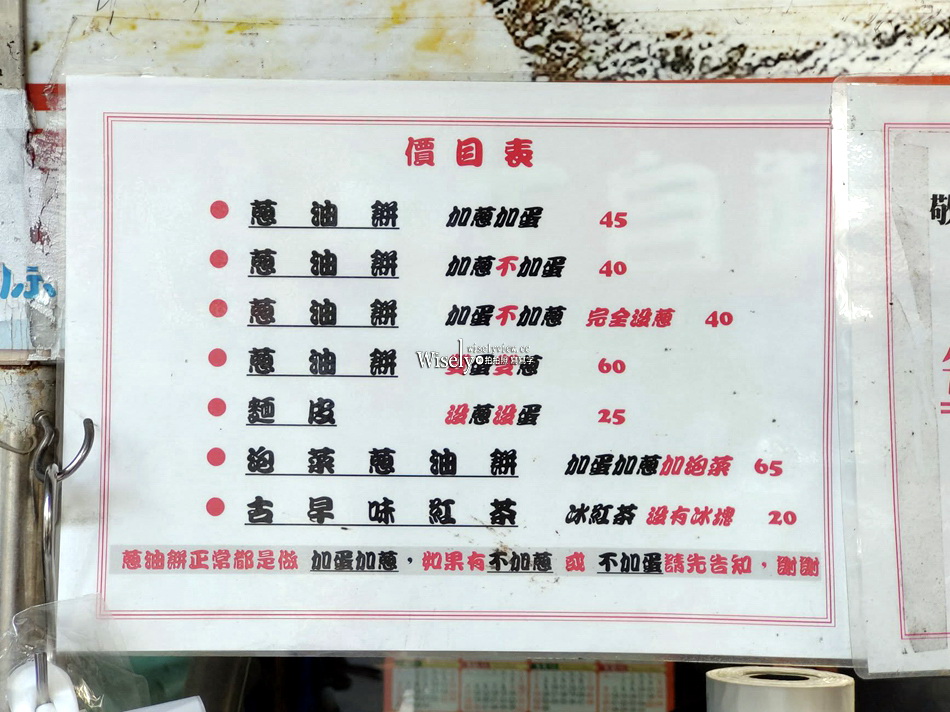 價目表
蔥油餅 加蔥加蛋 45
蔥油餅 加蔥不加蛋 40
蔥油餅 加蛋不加蔥 完全沒蔥 40
蔥油餅 雙蛋雙蔥 60
麵皮 沒蔥沒蛋 25
泡菜蔥油餅 加蛋加蔥加泡菜 65
古早味紅茶 冰紅茶 沒有冰塊 20
蔥油餅正常都是做 加蛋加蔥,如果有不加蔥 或 不加蛋請先告知,謝謝
wiselyview.cc
Wisely
敬